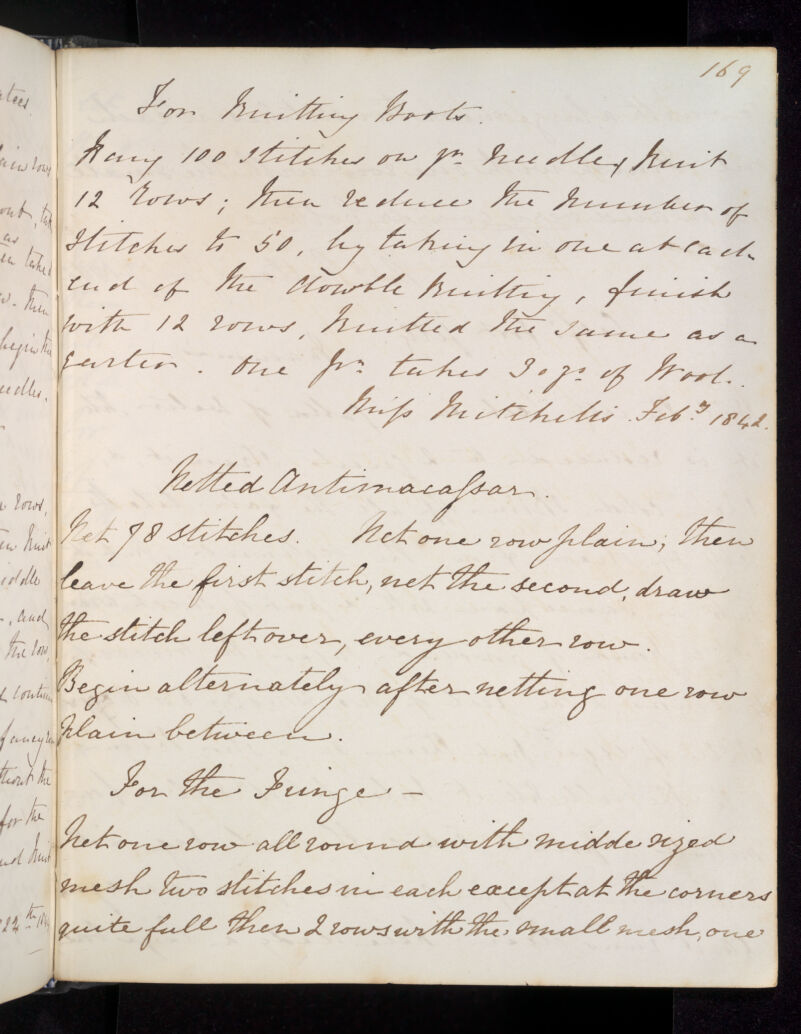 169
For Knitting Boots.
Hang 100 Stitches on yr. Needle, Knit
12 rows; then reduce the number of
stitches to 50, by taking in one at each
end of the double knitting, finish
with 12 rows, knitted the same as a
garter. One pr. takes 3 ozs. of Wool.
Miſs Mitchell's. Feby. 1842.
Netted Antimacaſsar.
Net 78 stitches. Net one row plain; then
leave the first stitch, net the second, draw
the stitch left over, every other row.
Begin alternately after netting one row
plain between.
For the Fringe -
Net one row all round with midde sized
mesh two stitches in each except at the corners
quite full then 2 rows with the small mesh, one